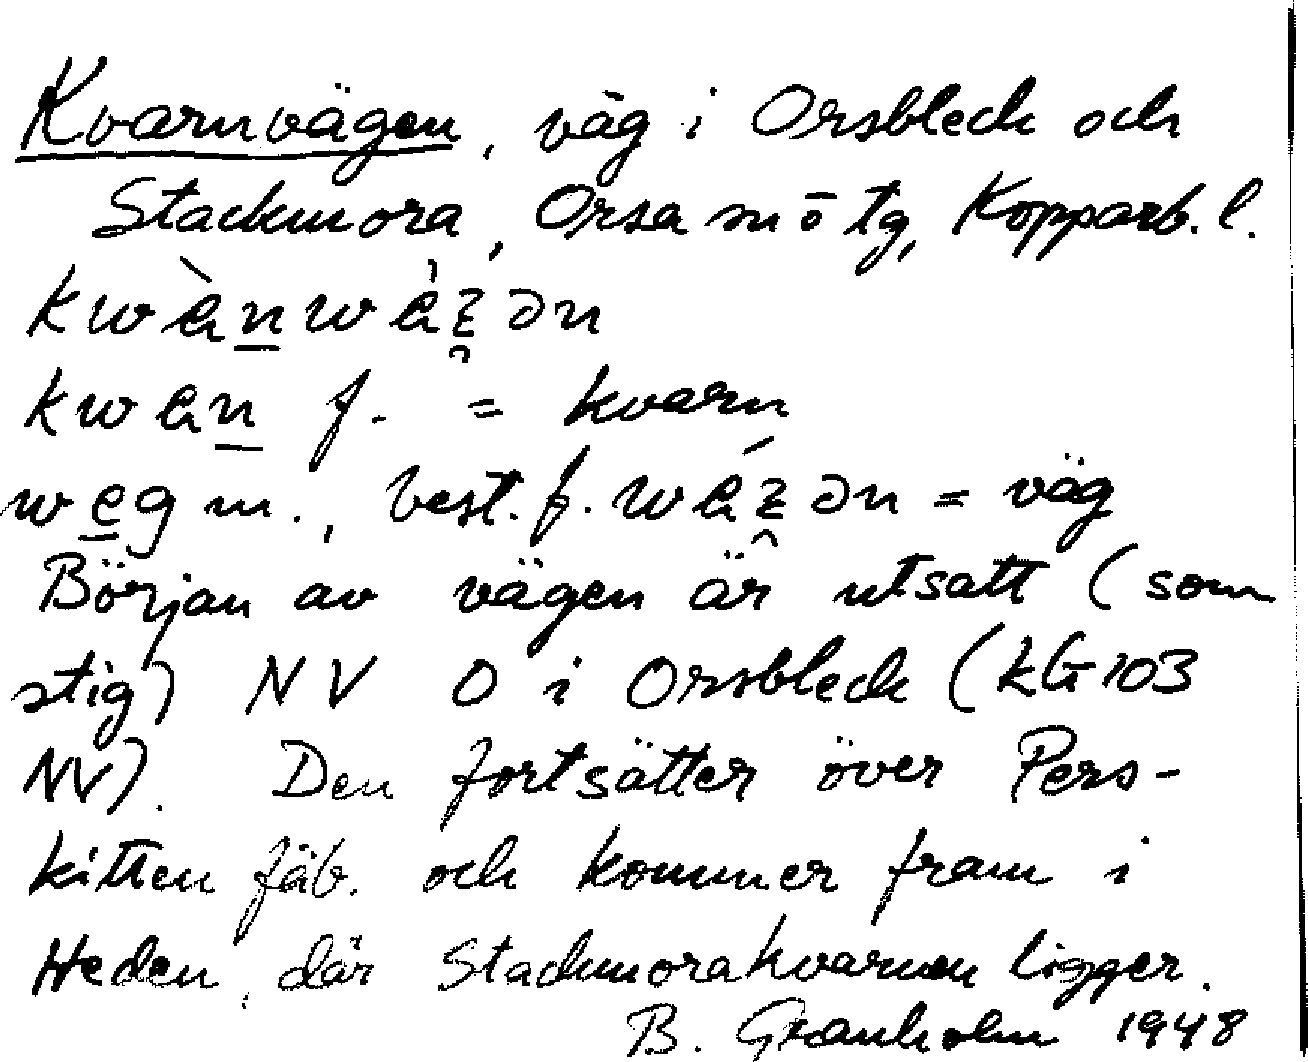 Kvarnvägen, väg i Orsbleck och
Stackmora, Orsa sn ō tg, Kopparb. l.
kwàn̲wáʒən
kwan̲ f. = kvarn
we̲g m., best. f. wáʒən = väg
Början av vägen är utsatt (som
stig) NV O i Orsbleck (kG 103
NV). Den fortsätter över Pers-
kitten fäb. och kommer fram i
Heden, där Stackmorakvarnen ligger.
B. Granholm 1948